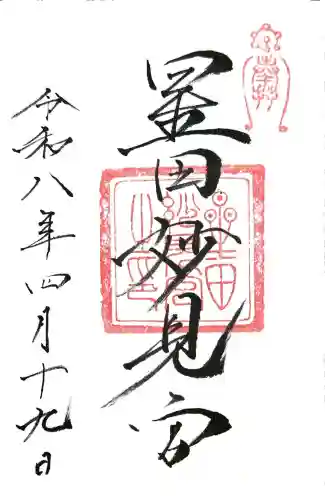 奉拝
星田妙見宮
令和八年四月十九日